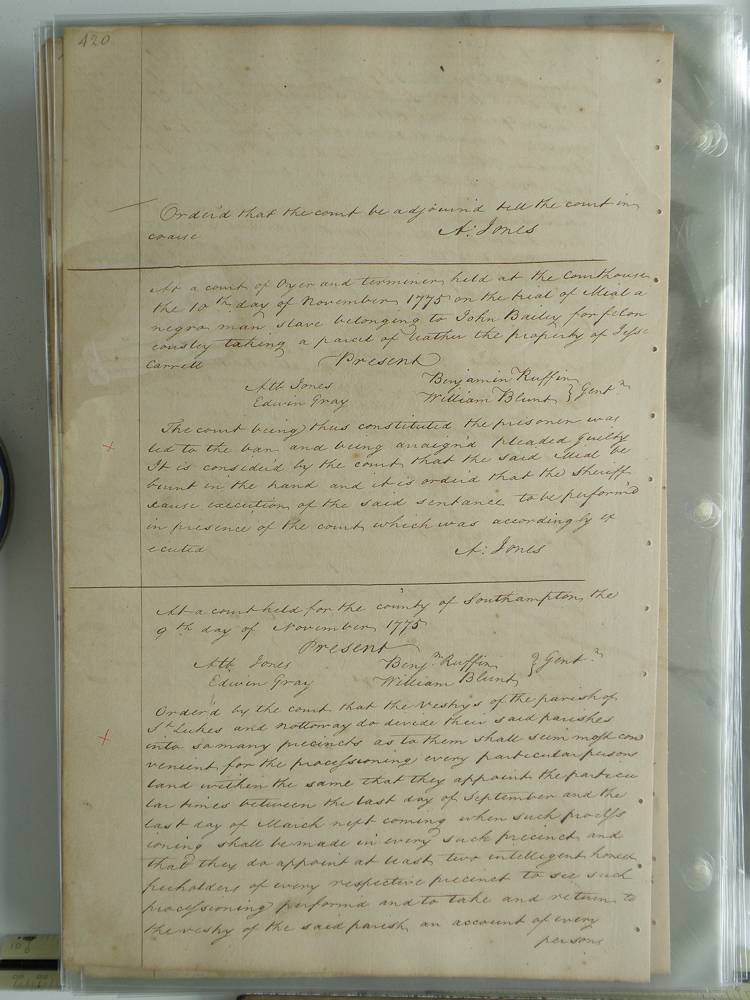 420
Order'd that the court be adjourn'd till the court in
course A: Jones
At a court of Oyer and terminer held at the Courthouse
the 10th day of November 1775 on the trial of Mial a
negro man slave belonging to John Bailey for felon
eously taking a parcel of leather the property of Jesse
Carrell
Present
Alb. Jones Benjamin Ruffin
Edwin Gray William Blunt } Gent.n
The court being thus constituted the prisoner was
led to the bar and being araign'd pleaded Guilty
It is consider'd by the court that the said Mial be
burnt in the hand and it is order'd that the Sheriff
cause execution of the said sentance to be perform'd
in presence of the court which was accordingly ex
ecuted A: Jones
At a court held for the county of Southampton the
9th day of November 1775
Present
Alb. Jones Benj.n Ruffin } Gent.n
Edwin Gray William Blunt
Order'd by the court that the Vestrys of the parish of
St. Lukes and nottoway do divide their said parishes
into so many precincts as to them shall seem most con
venient for the processioning every particular persons
land within the same that they appoint the particu
lar times between the last day of September and the
last day of March next coming when such process
ioning shall be made in every such precinct and
that they do appoint at least two intelligent honest
freeholders of every respective precinct to see such
processioning perform'd and to take and return to
the vestry of the said parish an account of every
persons